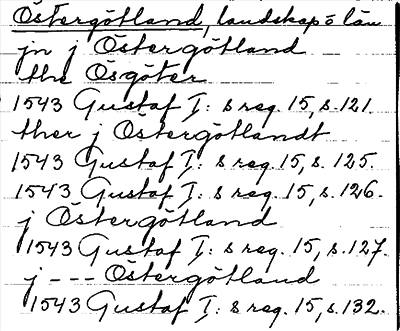 Östergötland, landskap o län
jn j Östergötland
the Ösgöter
1543 Gustaf I: s reg. 15, s. 121.
ther j Östergötlandt
1543 Gustaf I: s reg. 15, s. 125.
1543 Gustaf I: s reg. 15, s. 126.
j Östergötland
1543 Gustaf I: s reg. 15, s. 127.
j --- Östergötland
1543 Gustaf I: s reg. 15, s. 132.